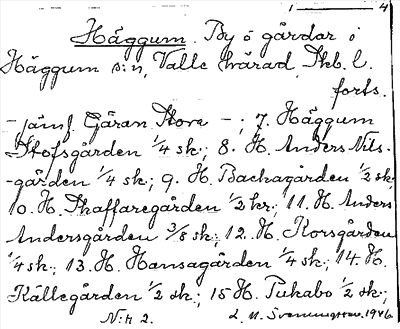 1 — 4
Häggum. By o gårdar i
Häggum s:n, Valle härad, Skb. l.
forts.
- jämf. Gäran Stora - ; 7. Häggum
Stofsgården 1/4 sk.; 8. H. Anders Nils-
-gården 1/4 sk; 9. H. Backagården 1/2 sk
10. H. Skaffaregården 1/2 kr; 11. H. Anders
Andersgården 3/8 sk; 12. H. Korsgården
1/4 sk; 13. H. Hansagården 1/4 sk; 14. H.
Källegården 1/2 sk; 15 H. Pukabo 1/2 sk;
N:r 2. 1946